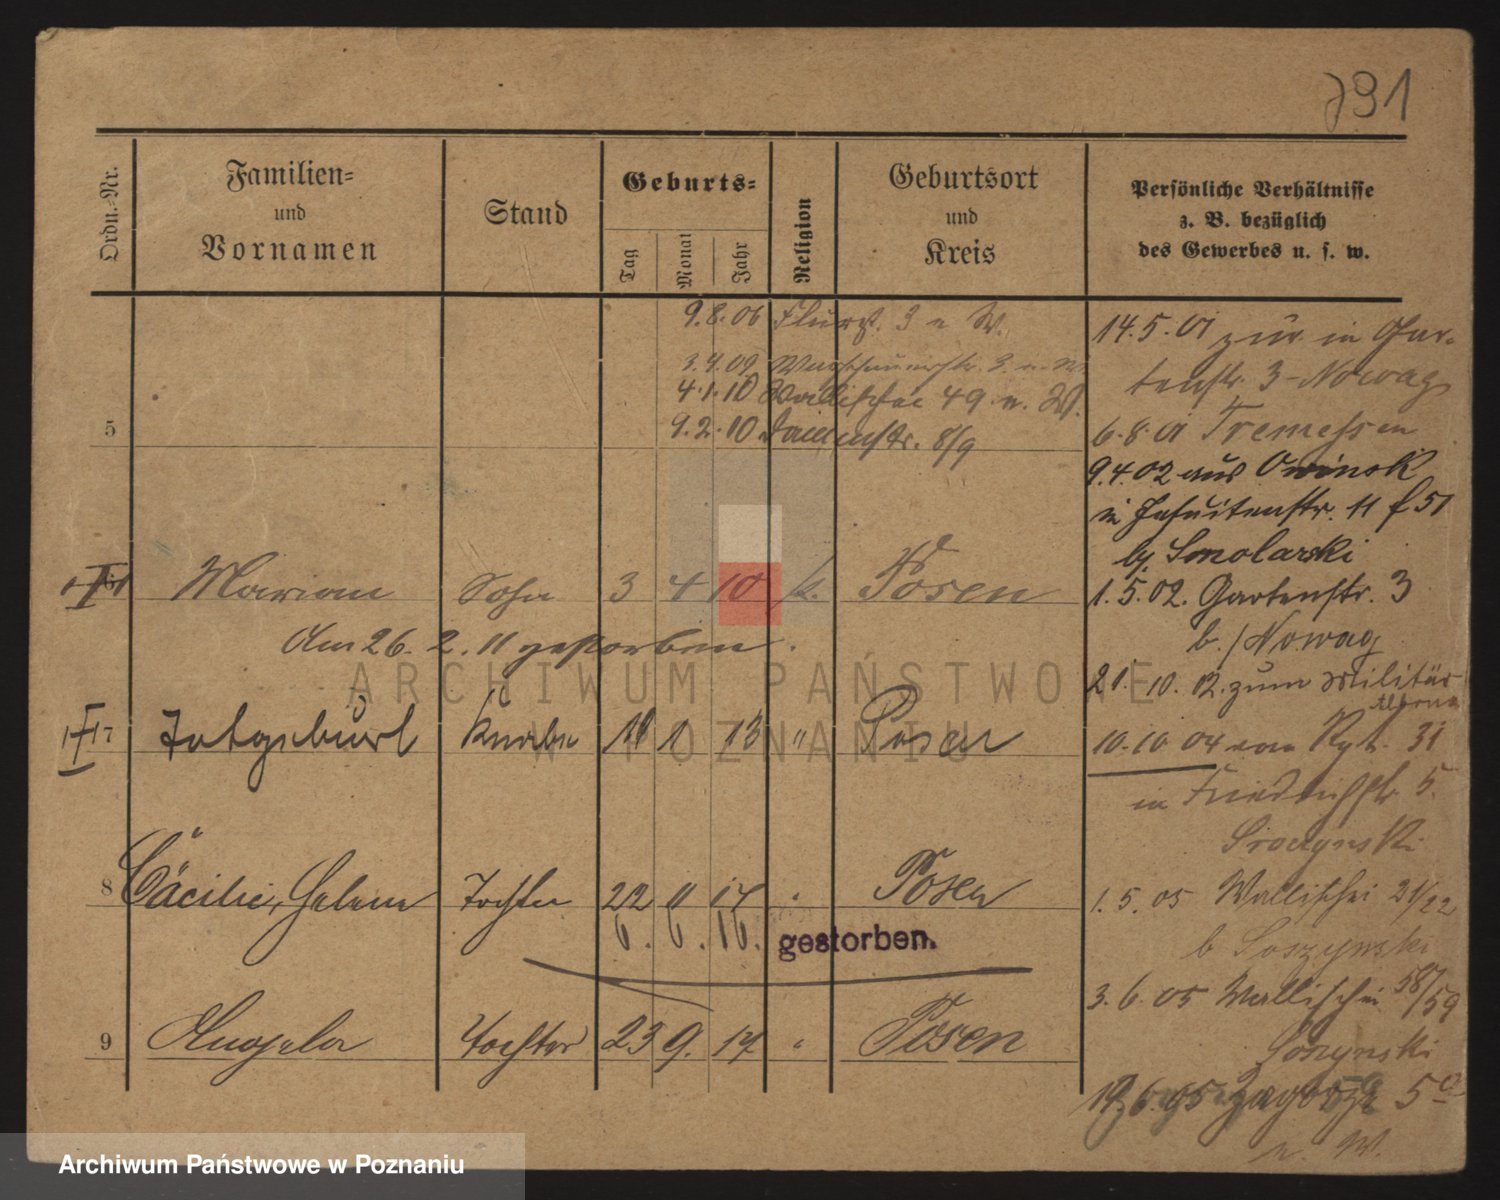 791
Ordn.-Nr.
Familien-
und
Vornamen
Stand
Geburts-
Tag
Monat
Jahr
Religion
Geburtsort
und
Kreis
Persönliche Verhältnisse
z. B. bezüglich
des Gewerbes u. s. w.
9.8.06 3 n W.
3.4.09
4.1.10 Wallischei 49 n. W.
5 9.2.10 8/9
Marian Sohn 3 4 10 k. Posen
Am 26. 2. 11 gestorben.
7 Totgeburt Knabe 11 1 13 " Posen
8 Cäcilie, Helene Tochter 22 11 14 " Posen
6. 6. 16. gestorben.
9 Angela Tochter 23 9. 17 " Posen
14.5.01 zur. in Gar-
tenstr. 3 - Nowag
6.8.01 Tremessen
9.4.02 aus Owinsk
in Jesuitenstr. 11 f 51
bj Smolarski
1.5.02. Gartenstr. 3
b. /Nowag
21. 10. 02. zum Militär
Altona
10.10 04 vom Rgt. 31
in Friedrichstr. 5.
1. 5. 05 Wallischei 21/22
b Soszynski
3. 6. 05 Wallischei 58/59
Soszynski
19.6.05 Zagorze 5a
n. W.
ARCHIWUM PAŃSTWOWE
W POZNANIU
Archiwum Państwowe w Poznaniu